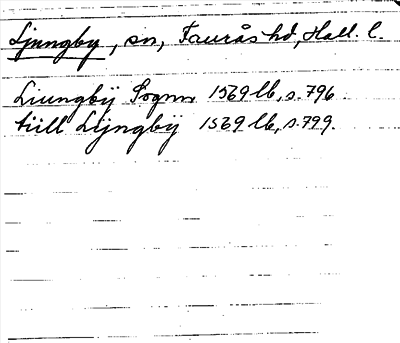 Ljungby, sn, Faurås hd, Hall. l.
Liungbÿ Sognn 1569 lb, s. 796.
tiill Lÿngbÿ 1569 lb, s. 799.